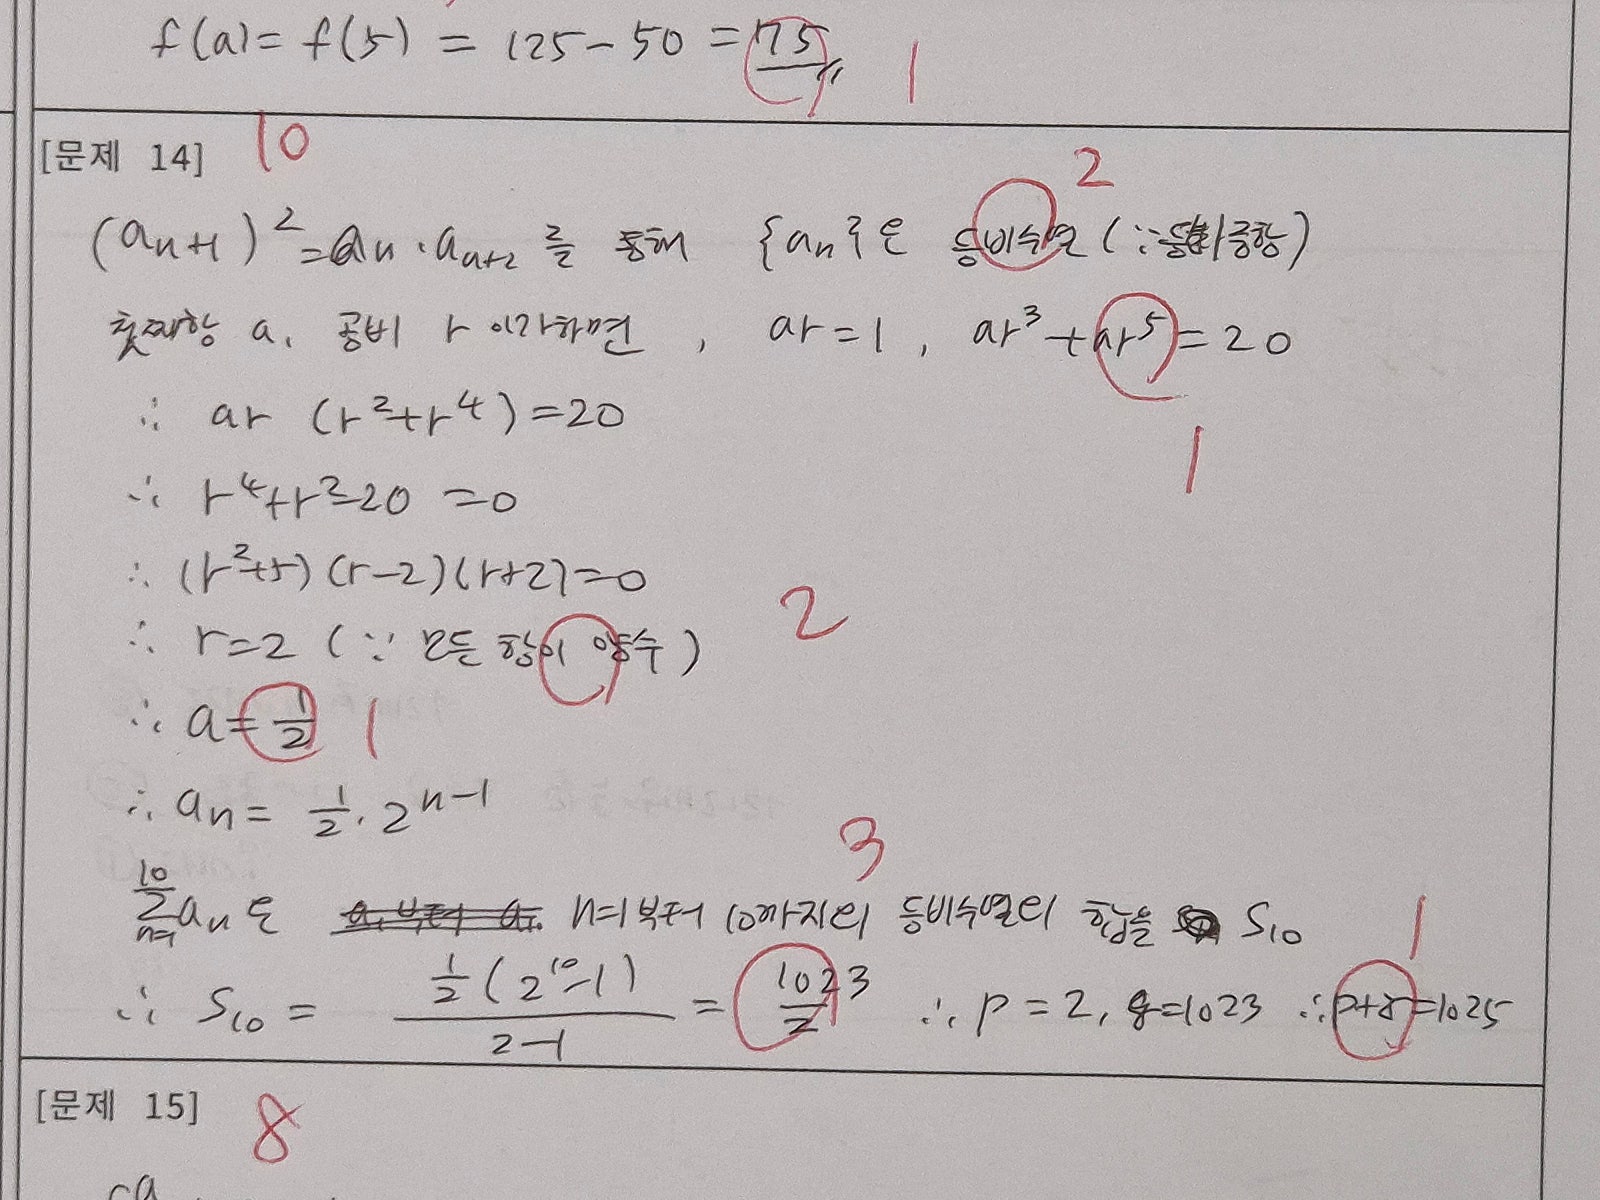 f(a) = f(5) = 125 - 50 = 75 1
[문제 14] 10
2
(a_{n+1})^2 = a_n · a_{n+2} 를 통해 {a_n}은 등비수열 (∵ 등비중항)
첫째항 a, 공비 r 이라하면, ar = 1, ar^3 + ar^5 = 20
1
∴ ar (r^2 + r^4) = 20
∴ r^4 + r^2 - 20 = 0
∴ (r^2 + 5)(r - 2)(r + 2) = 0
2
∴ r = 2 (∵ 모든 항이 양수)
∴ a = 1/2 1
∴ a_n = 1/2 · 2^{n-1}
3
∑_{n=1}^{10} a_n 은 n=1부터 10까지의 등비수열의 합을 S_{10}
1
∴ S_{10} = \frac{1/2 (2^{10} - 1)}{2-1} = 1023/2 ∴ p = 2, q = 1023 ∴ p+q = 1025
[문제 15] 8